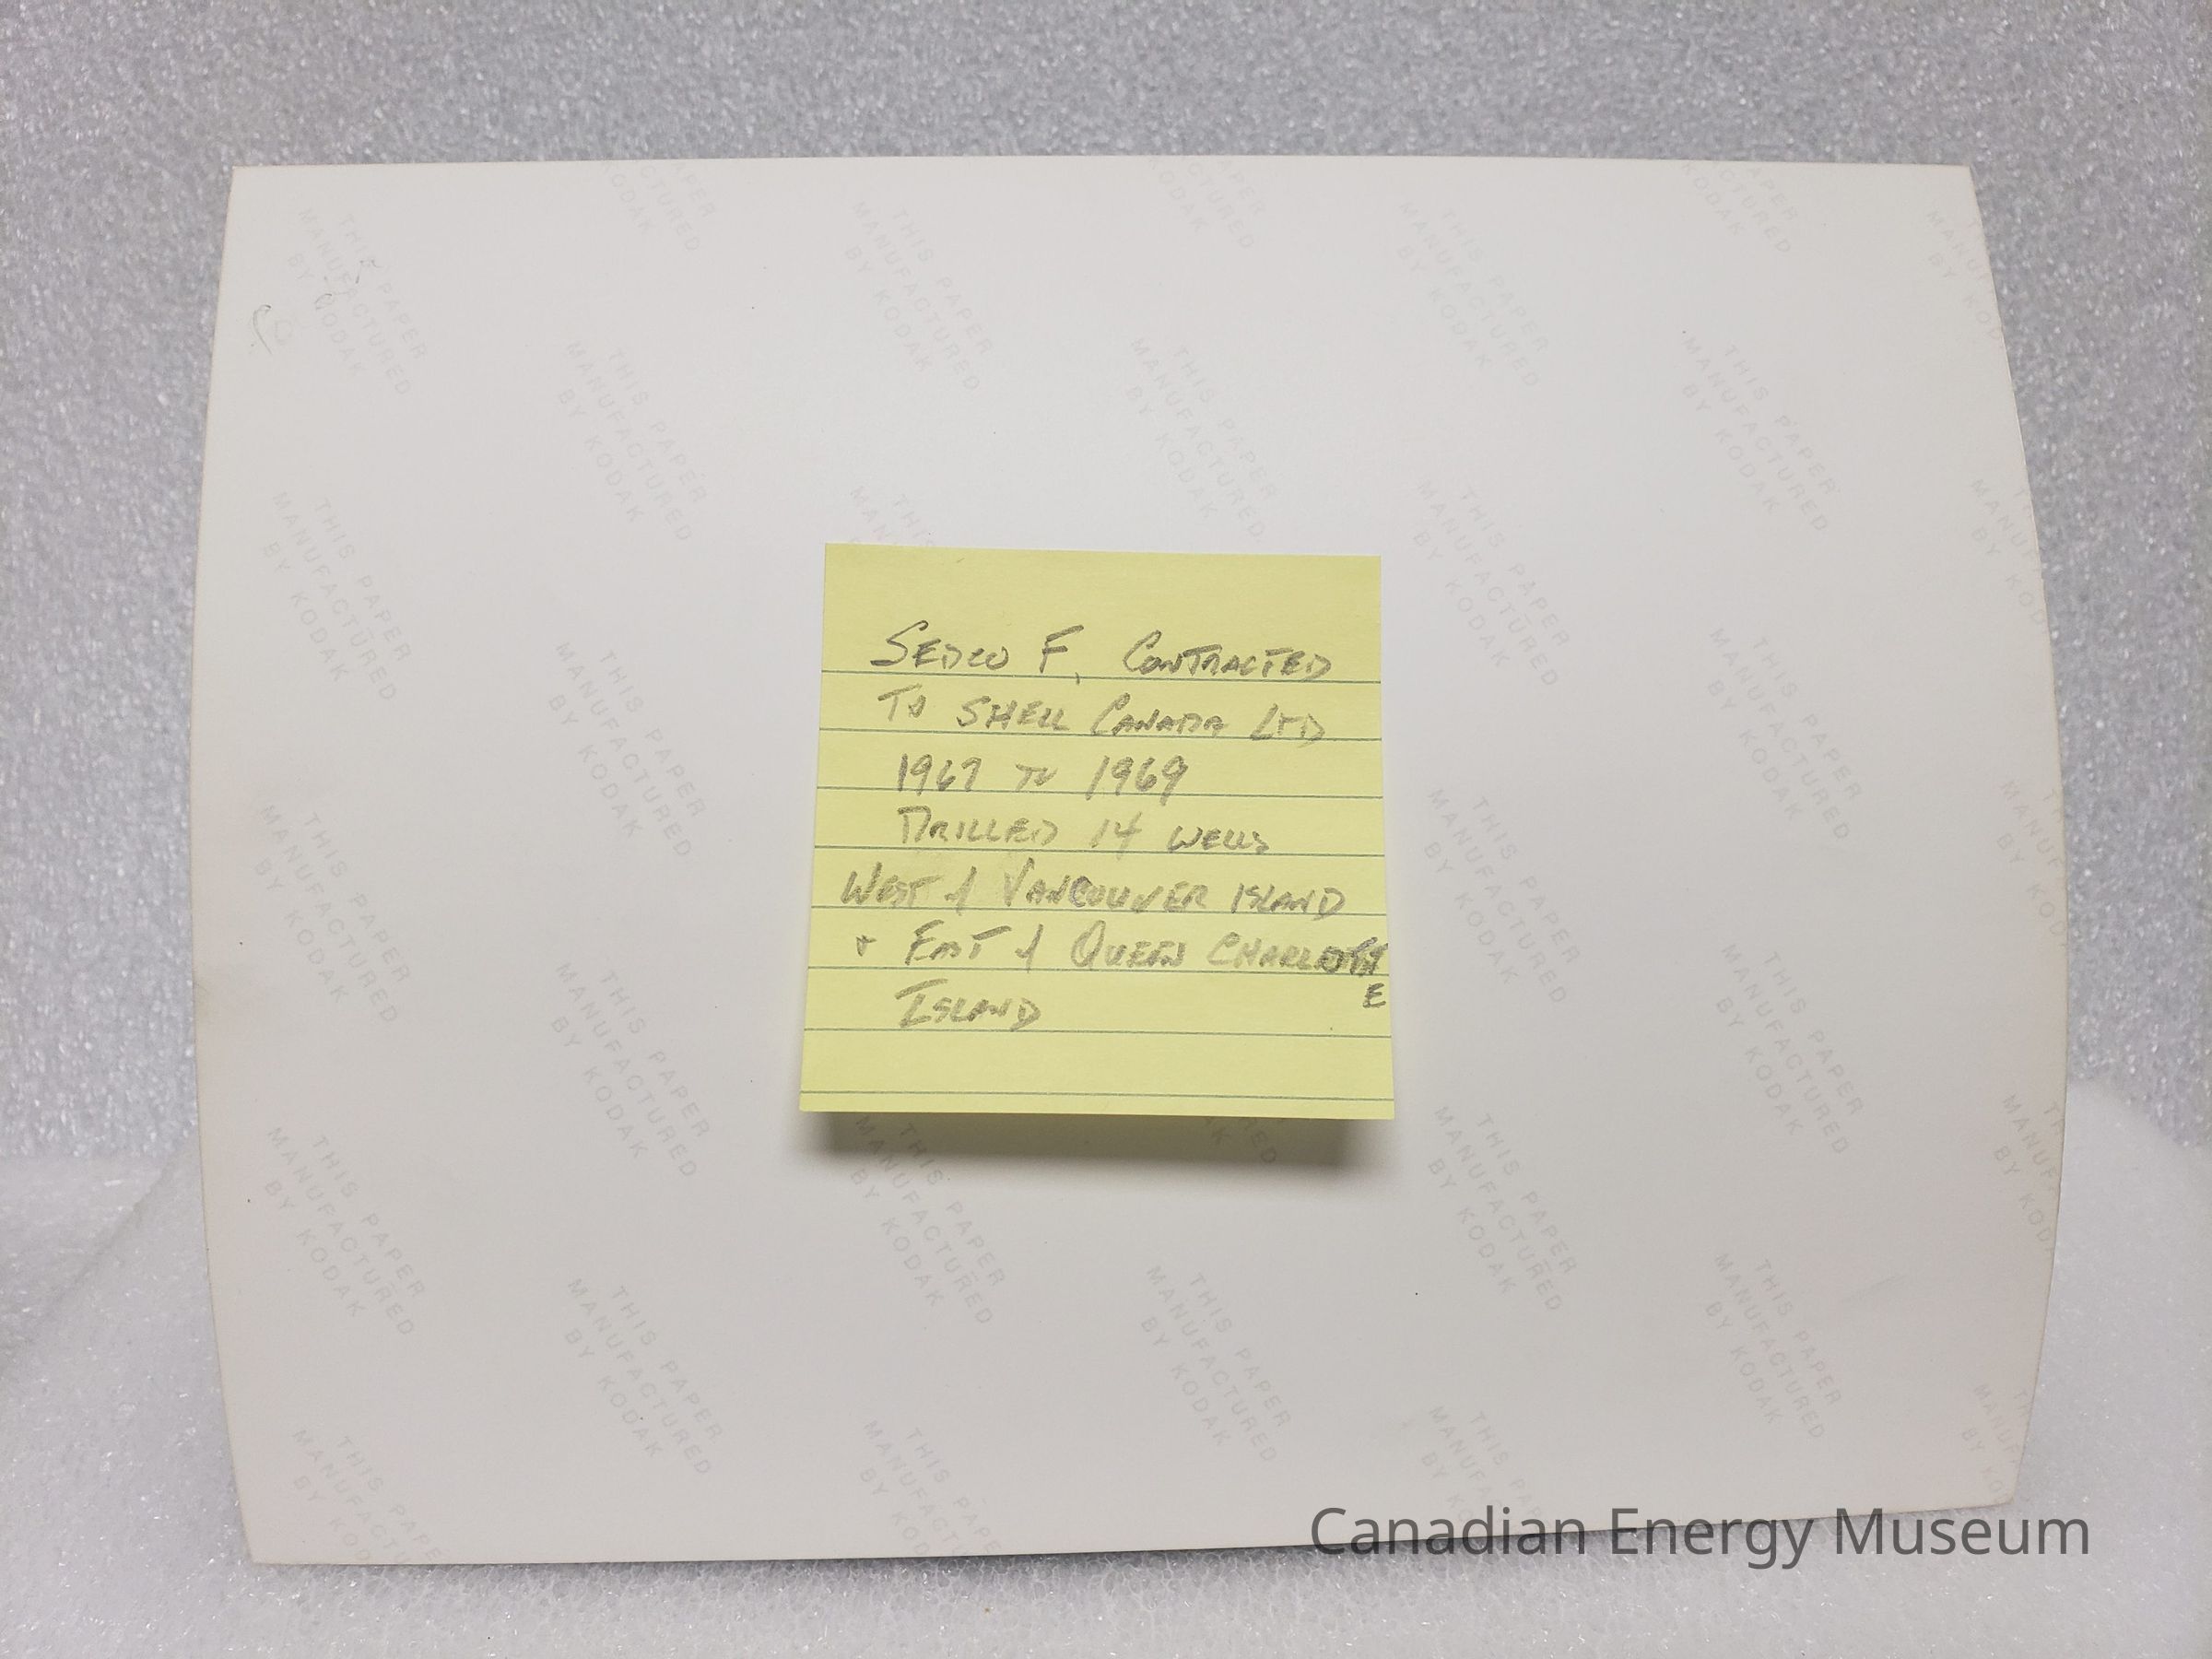 SEDCO F, CONTRACTED
TO SHELL CANADA LTD
1967 TO 1969
DRILLED 14 WELLS
WEST of VANCOUVER ISLAND
+ EAST of QUEEN CHARLOTTE
ISLAND
THIS PAPER
MANUFACTURED
BY KODAK
Canadian Energy Museum